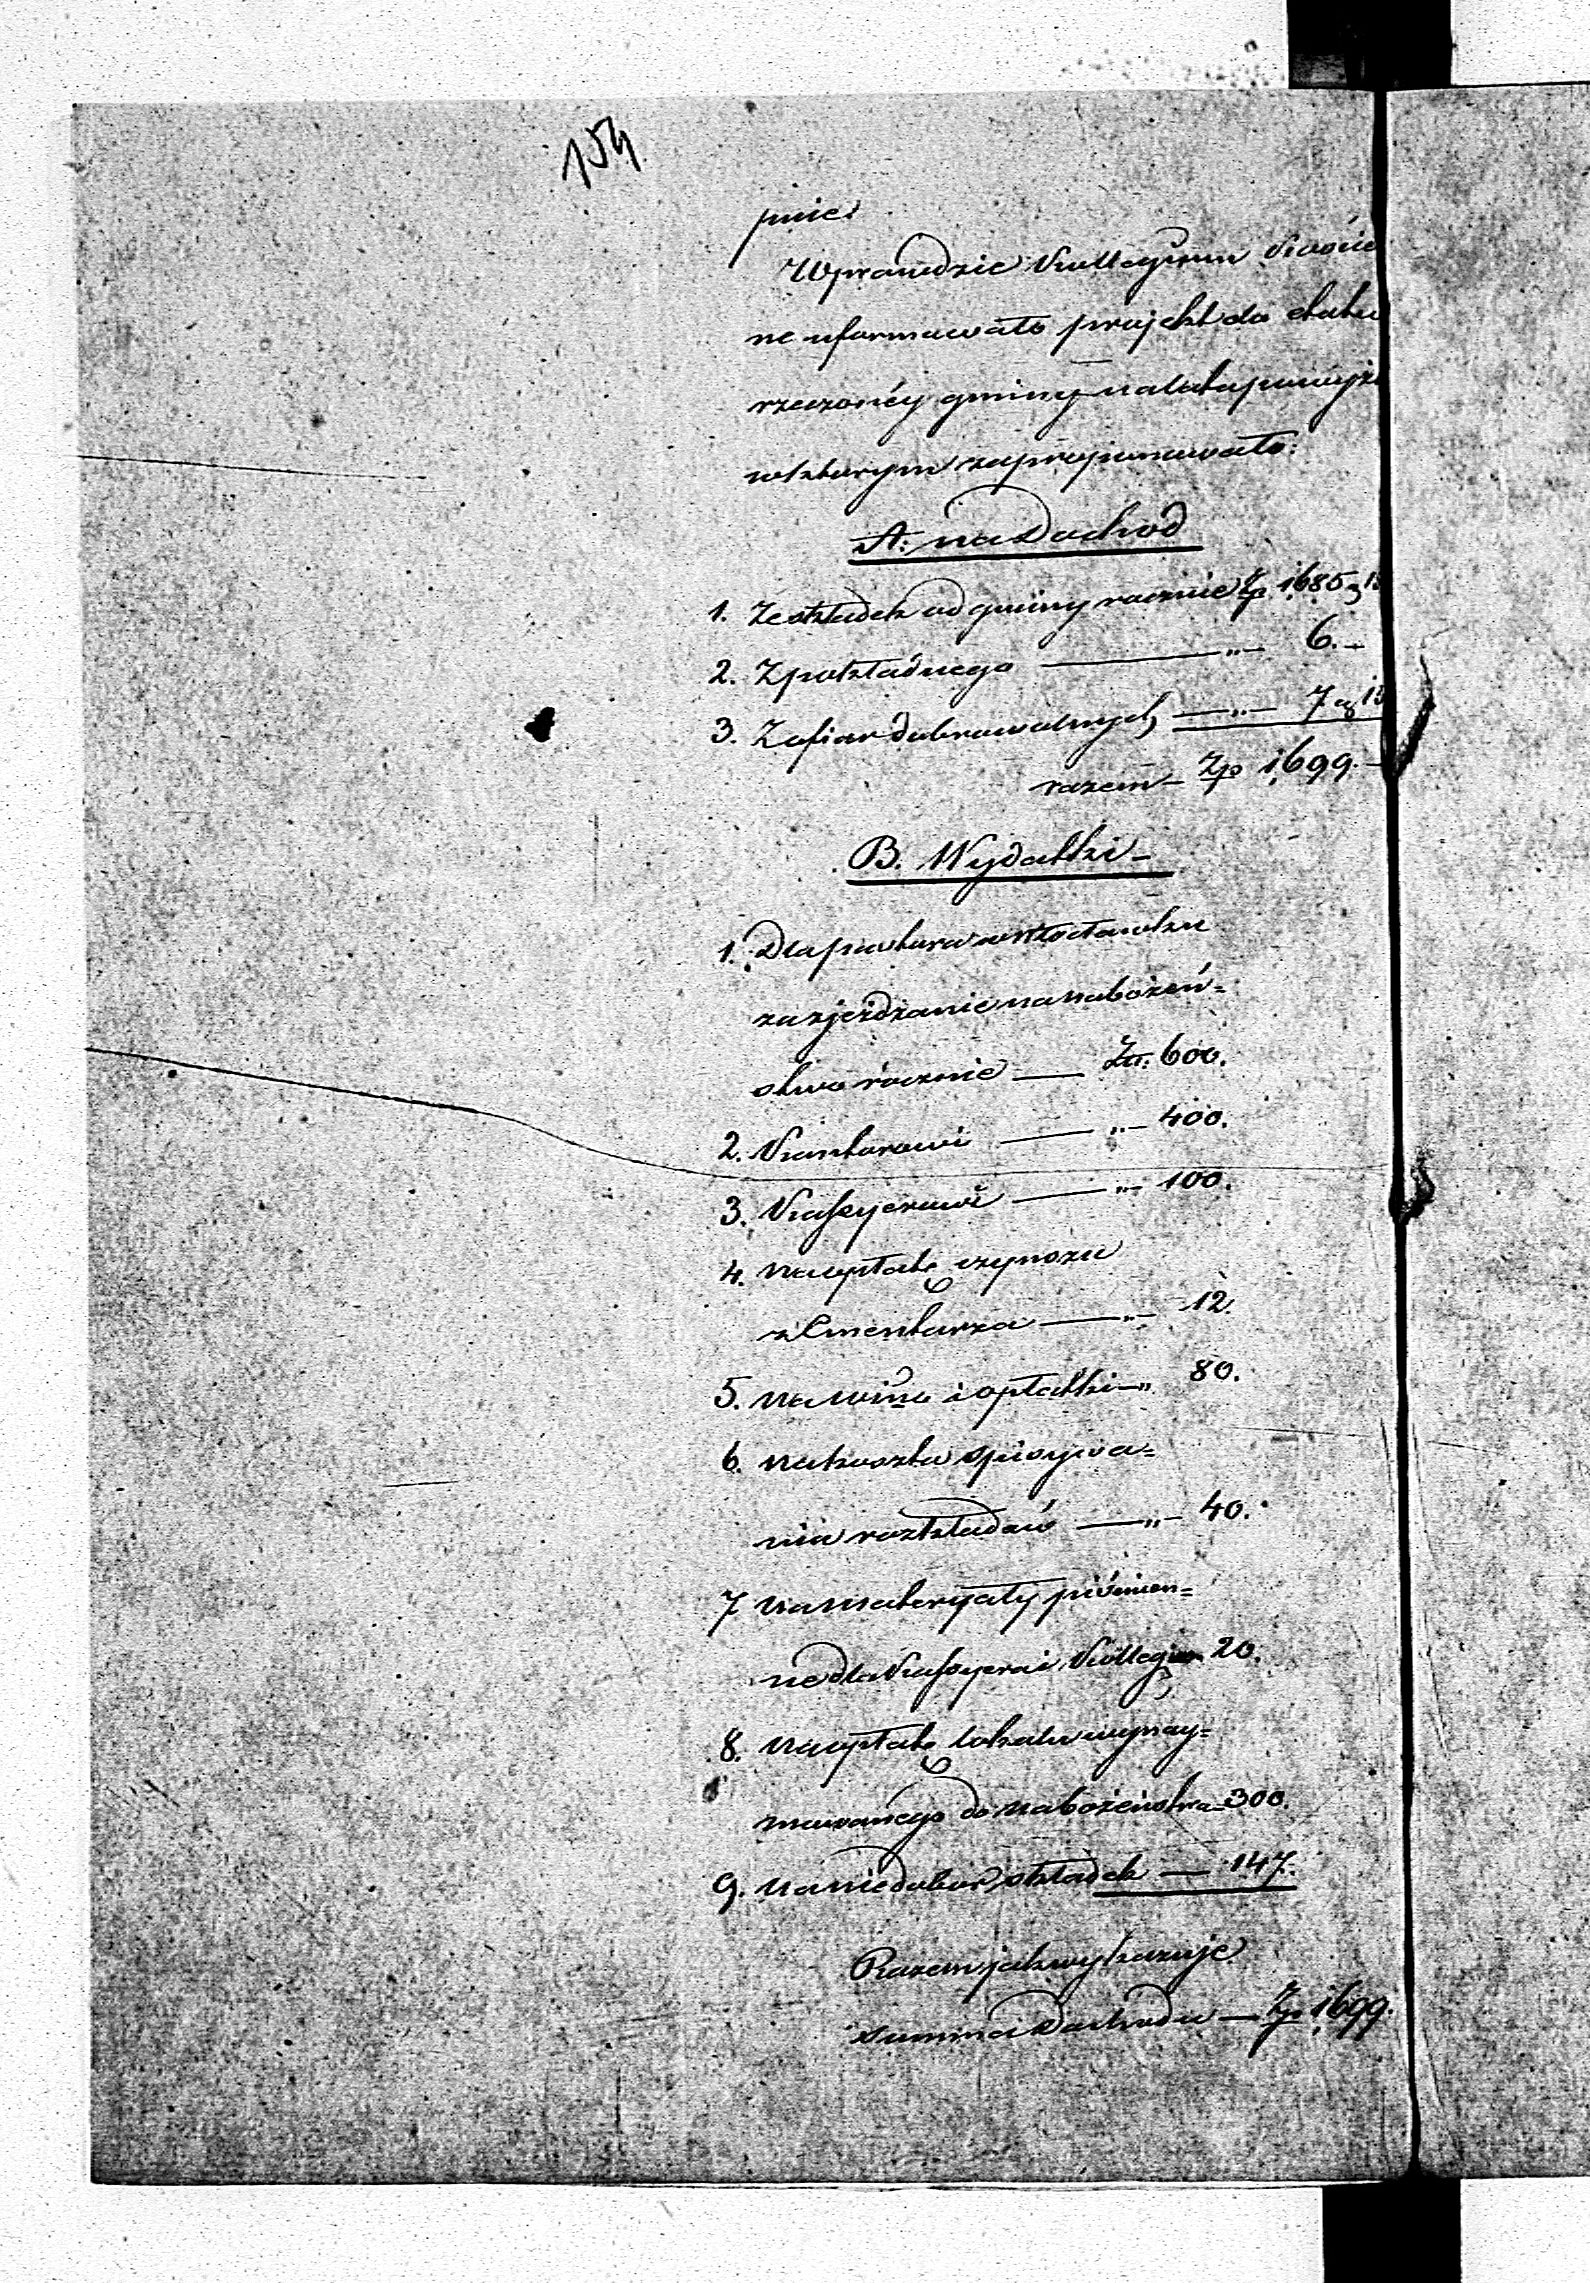 154.
pnie.
Wprawdzie Kollegium Kościel
ne uformowało projekt do etatu
rzeczonéy gminy na lata powyż
w którym zaproponowało:
A: na Dochod
1. Ze składek od gminy rocznie Zp 1685 g 15
2. Z pokładnego — „ — 6. —
3. Z ofiar dobrowolnych — „ — 7 g 15
razem — Zp 1699. —
B. Wydatki —
1. Dla pastora w Włocławku
za zjeżdżanie na nabożeń=
stwo rocznie — Zł: 600.
2. Kantorowi — „ — 400.
3. Kassyerowi — „ — 100.
4. na opłatę czynszu
z Cmentarza — „ — 12.
5. na wino i opłatki — „ 80.
6. na koszta spisywa=
nia rozkładów — „ — 40.
7 na materyały piśmien=
ne dla Kassyera i Kolleg: 20.
8. na opłatę lokalu wynay=
mowanego do nabożeństwa — 300.
9. na niedobor składek — 147.
Razem jak wykazuje
summa Dochodu — Zp 1699.